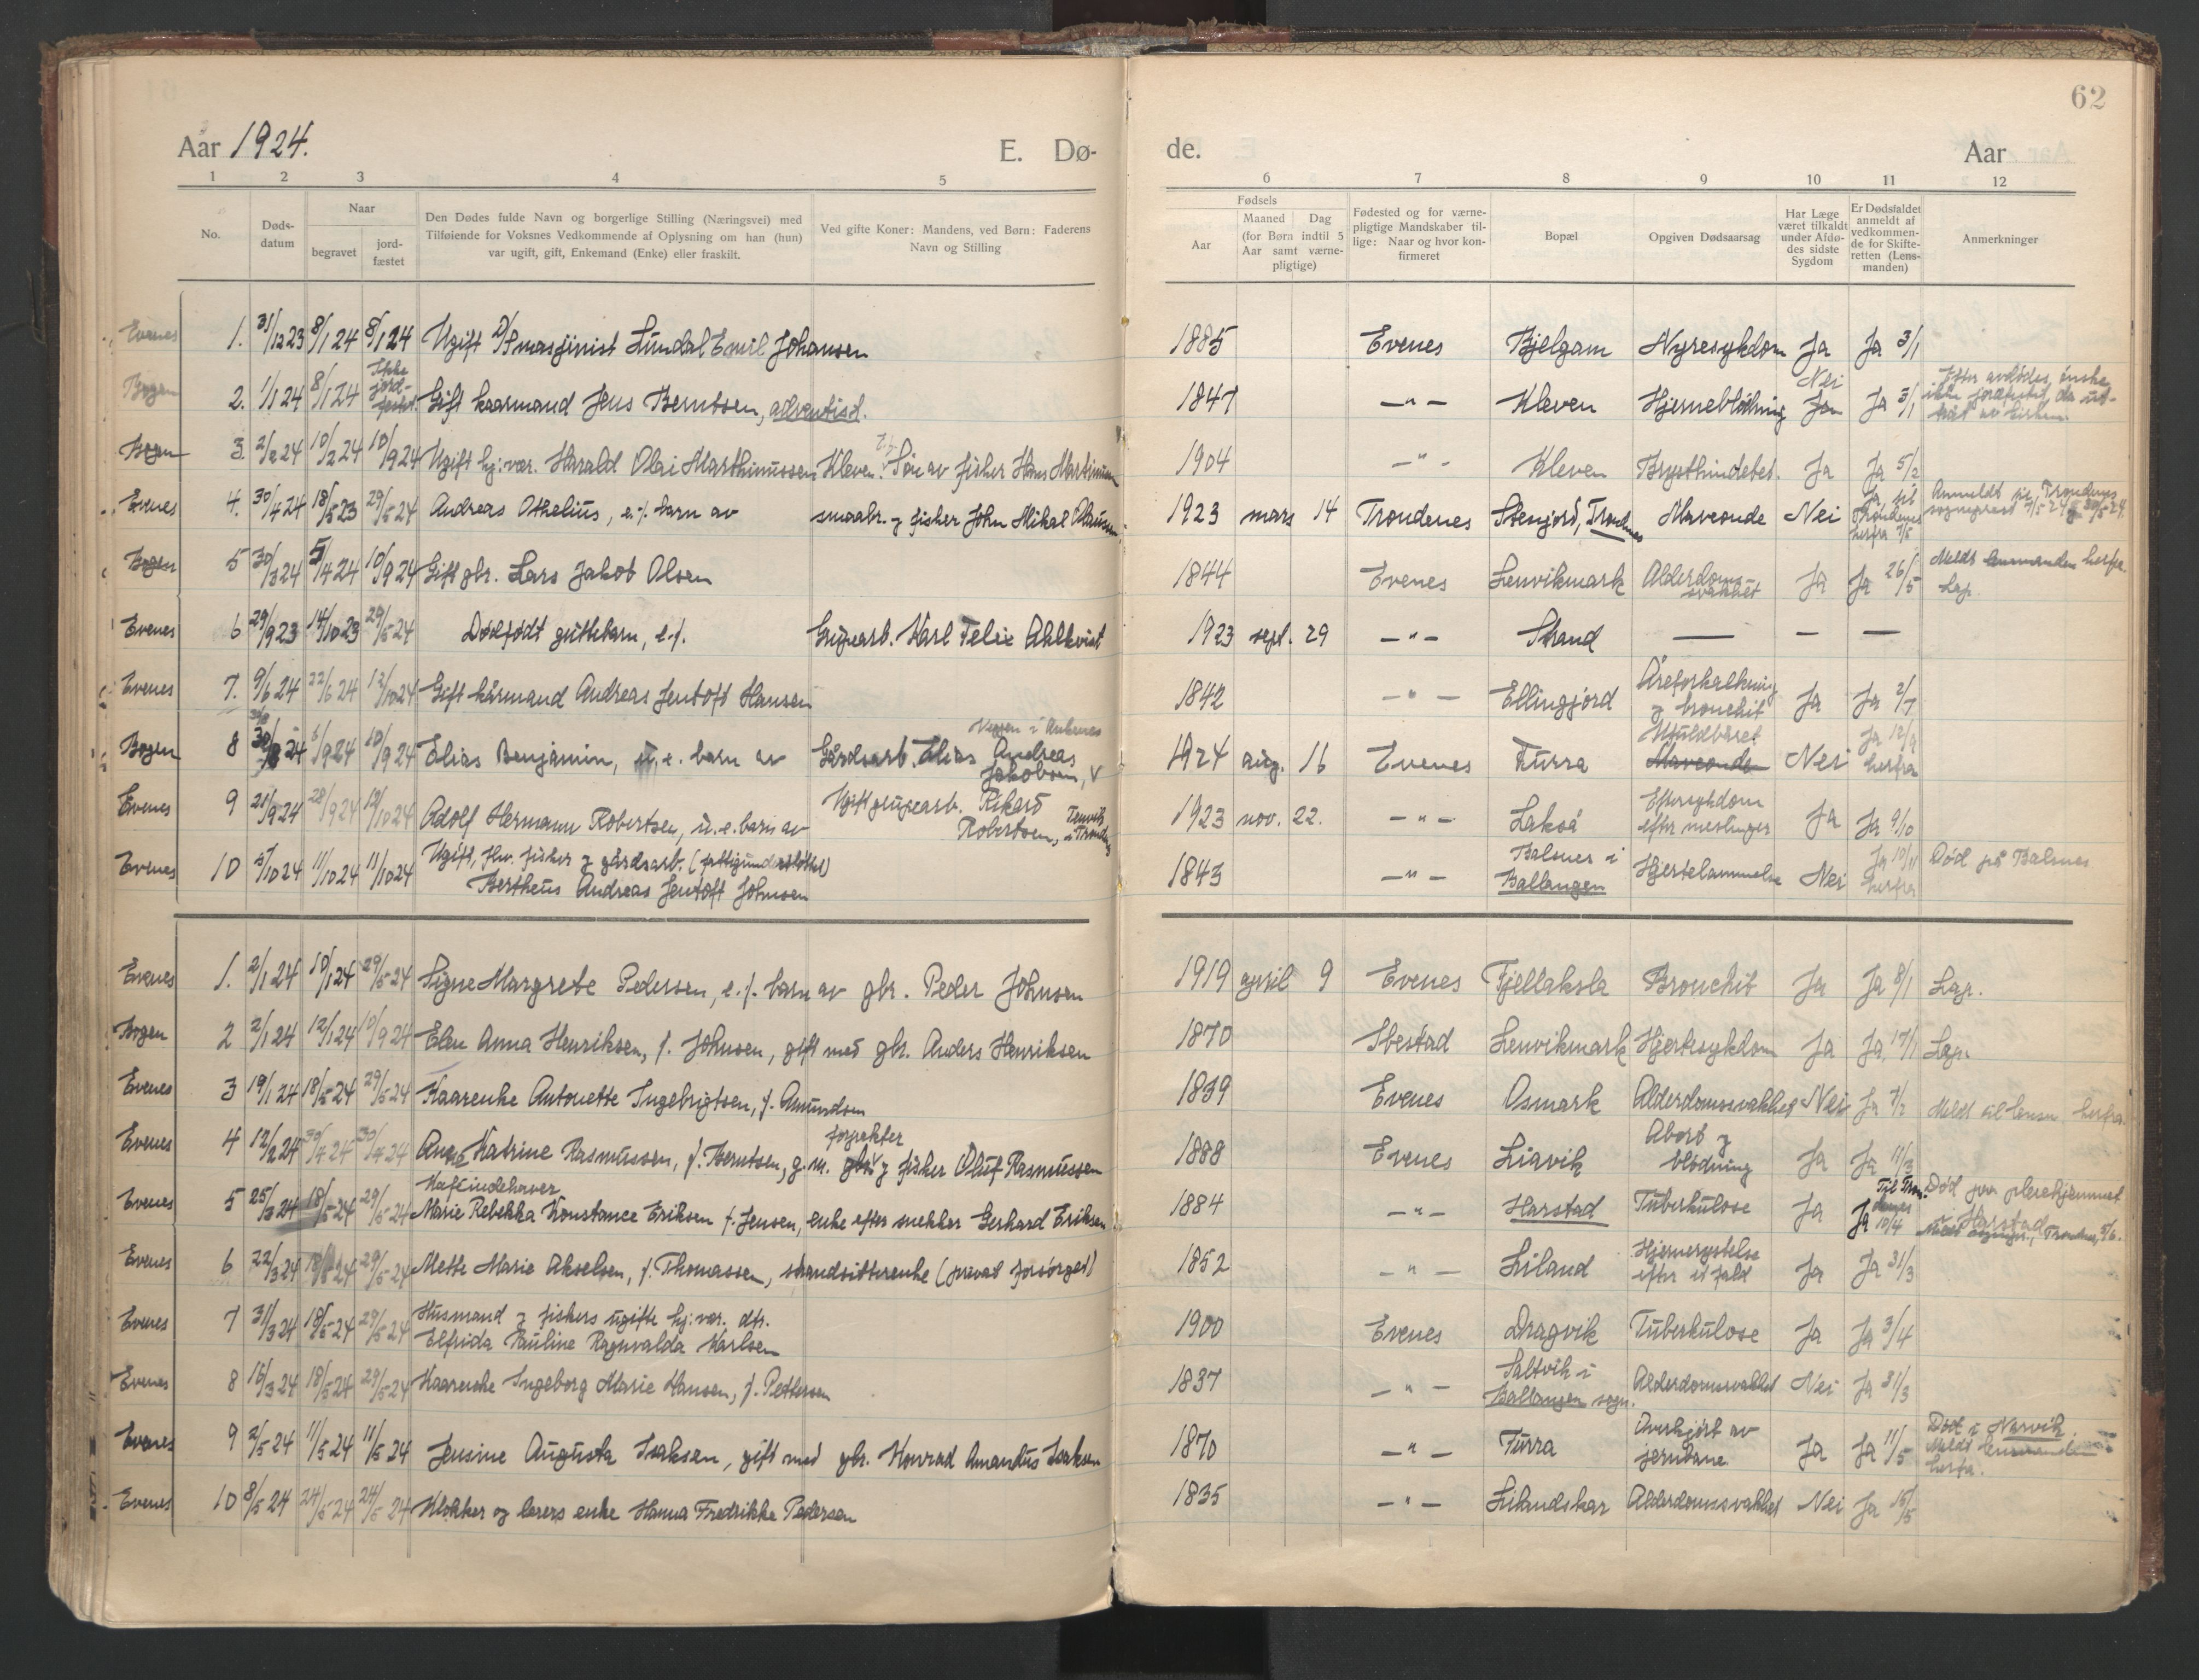 62
Aar 1924.
E. Dø-
de.
Aar
1 2 3 4 5
6 7 8 9 10 11 12
No.
Døds-
datum
Naar
begravet
jord-
fæstet
Den Dødes fulde Navn og borgerlige Stilling (Næringsvei) med
Tilføiende for Voksnes Vedkommende af Oplysning om han (hun)
var ugift, gift, Enkemand (Enke) eller fraskilt.
Ved gifte Koner: Mandens, ved Børn: Faderens
Navn og Stilling
Fødsels
Aar
Maaned Dag
(for Børn indtil 5
Aar samt værne-
pligtige)
Fødested og for værne-
pligtige Mandskaber til-
lige: Naar og hvor kon-
firmeret
Bopæl
Opgiven Dødsaarsag
Har Læge
været tilkaldt
under Afdø-
des sidste
Sygdom
Er Dødsfaldet
anmeldt af
vedkommen-
de for Skifte-
retten (Lens-
manden)
Anmerkninger
Evenes 1. 31/12 23 8/1 24 8/1 24 Ugift D/S masjinist Lundal Emil Johansen 1885 Evenes Bjelgam Nyresykdom Ja Ja 3/1
Bogen 2. 1/1 24 8/1 24 Ikke jord-festet. Gift kaarmand Jens Berntsen, adventist. 1847 -"- Kleven Hjerneblødning Nei Ja Ja 3/1 Efter avdødes ønske
ikke jordfestet, da ut-
traat av kirken.
Bogen 3. 2/2 24 10/2 24 10/9 24 Ugift hj:vær. Harald Olai Marthinussen Kleven. Søn av fisker Hans Martinussen 1904 -"- Kleven Brysthindebet. Ja Ja 5/2
Evenes 4. 30/4 24 18/5 23 29/5 24 Andreas Othelius, e.f. barn av smaabr. og fisker John Mikal 1923 mars 14 Trondenes Stenjord, Trondenes Maveonde Nei Ja til Trondenes herfra 7/5 Anmeldt til Trondenes
sogneprest 7/5 24 og 30/5 24.
Bogen 5 30/3 24 5/4 24 10/9 24 Gift gbr. Lars Jakob Olsen 1844 Evenes Lenvikmark Alderdoms-
svakhet Ja Ja 26/5 Meldt lensmanden herfra.
Lap.
Evenes 6 29/9 23 14/10 23 29/5 24 Dødfødt guttebarn, e.f. Grupearb. Karl Felix Ahlkvist 1923 sept. 29 -"- Strand — — —
Evenes 7. 9/6 24 22/6 24 12/10 24 Gift kårmand Andreas Jentoft Hansen 1842 -"- Ellingjord Åreforkalkning
og bronchit Ja Ja 2/7
Bogen 8 30/8 24 6/9 24 10/9 24 Elias Benjamin, u.e. barn av Gårdsarb. Elias Andreas
Jakobsen, 1924 aug. 16 Evenes Turra Maveonde Nei Ja 12/9 herfra
Evenes 9 21/9 24 28/9 24 12/10 24 Adolf Hermann Robertsen, u.e. barn av Ugift grupearb. Rikard
Robertsen, 1923 nov. 22. -"- Lakså Eftersykdom
efter meslinger Ja Ja 9/10
Evenes 10 5/10 24 11/10 24 11/10 24 Ugift, fhv. fisker og gårdsarb. (fattigunderstøttet)
Bertheus Andreas Jentoft Johnsen 1843 -"- Balsnes i
Ballangen Hjertelammelse Nei Ja 10/11 herfra Død på Balsnes
Evenes 1. 2/1 24 10/1 24 29/5 24 Signe Margrete Pedersen, e.f. barn av gbr. Peder Johnsen 1919 april 9 Evenes Fjellaksla Bronchit Ja Ja 8/1 Lap.
Bogen 2 2/1 24 12/1 24 10/9 24 Elen Anna Henriksen, f. Johnsen, gift med gbr. Anders Henriksen 1870 Ibestad Lenvikmark Hjertesykdom Ja Ja 17/1 Lap.
Evenes 3 19/1 24 18/5 24 29/5 24 Kaarenke Antonette Ingebrigtsen, f. Amundsen 1839 Evenes Osmark Alderdomssvakhet Nei Ja 7/2 Meldt til lensm. herfra.
Evenes 4 12/2 24 30/4 24 30/4 24 Anna Katrine Rasmussen, f. Berntsen, g. m. forpakter gbr. og fisker Oluf Rasmussen 1888 Evenes Liavik Abort og
blødning Ja Ja 11/3
Evenes 5 25/3 24 18/5 24 29/5 24 Kafeindehaver
Marie Rebekka Konstance Eriksen f. Jensen, enke efter snekker Gerhard Eriksen 1884 -"- Harstad Tuberkulose Ja Til Trondenes Ja 10/4 Død paa pleiehjemmet
i Harstad
Evenes 6 22/3 24 18/5 24 29/5 24 Mette Marie Akselsen, f. Thomassen, strandsitterenke (privat forsørget) 1852 -"- Liland Hjernerystelse
efter et fald Ja Ja 31/3
Evenes 7 31/3 24 18/5 24 29/5 24 Husmand og fiskers ugifte hj:vær. dtr.
Elfrida Pauline Ragnvalda Karlsen 1900 Evenes Dragvik Tuberkulose Ja Ja 3/4
Evenes 8 16/3 24 18/5 24 29/5 24 Kaarenke Ingeborg Marie Hansen, f. Pettersen 1837 -"- Saltvik i
Ballangen sogn. Alderdomssvakhet Nei Ja 31/3
Evenes 9 2/5 24 11/5 24 11/5 24 Jensine Augusta Isaksen, gift med gbr. Konrad Amandus Isaksen 1870 -"- Turra Overkjørt av
jernbane Ja Ja 11/5 Død i Narvik.
Meldt lensmanden
herfra.
Evenes 10 8/5 24 24/5 24 24/5 24 Klokker og lærers enke Hanna Fredrikke Pedersen 1835 -"- Lilandskar Alderdomssvakhet Nei Ja 15/5